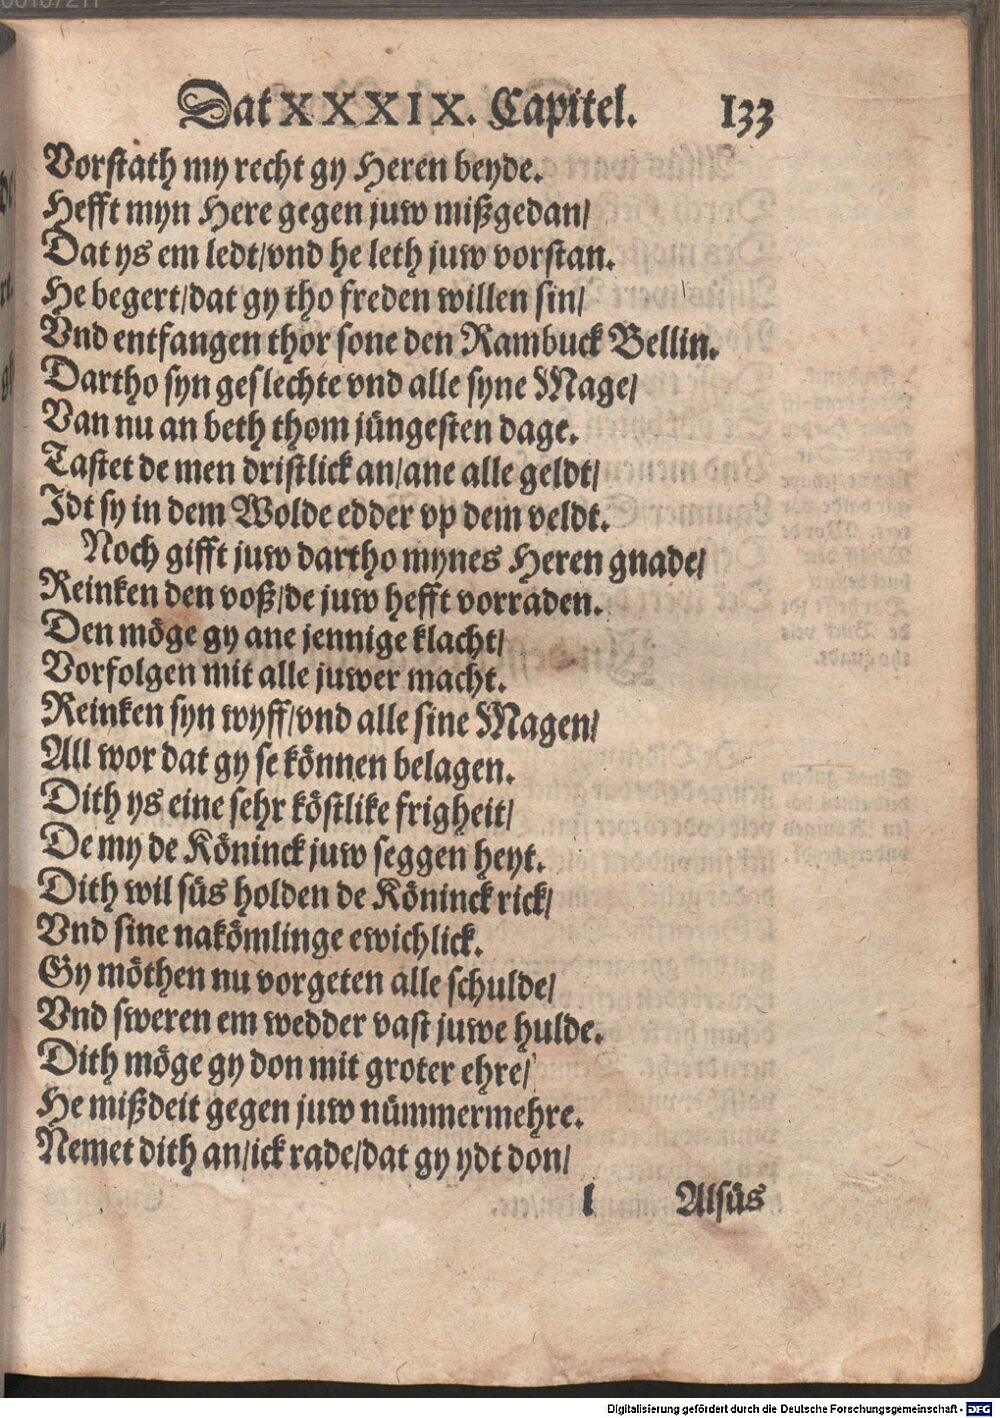 Dat XXXIX. Capitel. 133
Vorstath my recht gy Heren beyde.
Hefft myn Here gegen juw mißgedan/
Dat ys em ledt/vnd he leth juw vorstan.
He begert/dat gy tho freden willen sin/
Vnd entfangen thor sone den Rambuck Bellin.
Dartho syn geslechte vnd alle syne Mage/
Van nu an beth thom jüngesten dage.
Tastet de men dristlick an/ane alle geldt/
Idt sy in dem Wolde edder vp dem veldt.
Noch gifft juw dartho mynes Heren gnade/
Reinken den voß/de juw hefft vorraden.
Den möge gy ane jennige klacht/
Vorfolgen mit alle juwer macht.
Reinken syn wyff/vnd alle sine Magen/
All wor dat gy se können belagen.
Dith ys eine sehr köstlike frigheit/
De my de Köninck juw seggen heyt.
Dith wil süs holden de Köninck rick/
Vnd sine nakömlinge ewichlick.
Gy möthen nu vorgeten alle schulde/
Vnd sweren em wedder vast juwe hulde.
Dith möge gy don mit groter ehre/
He mißdeit gegen juw nümmermehre.
Nemet dith an/ick rade/dat gy ydt don/
l Alsüs
Digitalisierung gefördert durch die Deutsche Forschungsgemeinschaft - DFG